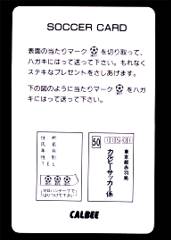 SOCCER CARD
表面の当たりマーク を切り取って、
ハガキにはって送って下さい。もれなく
ステキなプレゼントをさしあげます。
下の図のように当たりマーク をハガ
キにはって送って下さい。
住所
氏名
年令
TEL
50
東京都赤羽局
カルビーサッカー係
CALBEE